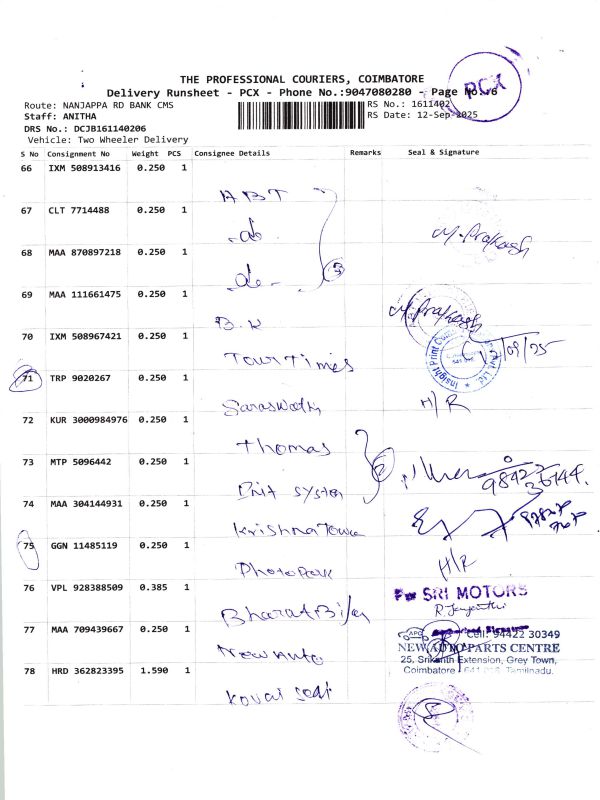 THE PROFESSIONAL COURIERS, COIMBATORE
PCX
Delivery Runsheet - PCX - Phone No.:9047080280 - Page No.
Route: NANJAPPA RD BANK CMS
RS No.: 1611402
Staff: ANITHA
RS Date: 12-Sep-2025
DRS No.: DCJB161140206
Vehicle: Two Wheeler Delivery
S No Consignment No Weight PCS Consignee Details Remarks Seal & Signature
66 IXM 508913416 0.250 1
ABT
67 CLT 7714488 0.250 1
-do
M. Prakash
68 MAA 870897218 0.250 1
-do-
3
69 MAA 111661475 0.250 1
B.K
M. Prakash
70 IXM 508967421 0.250 1
Tour Times
/09/25
71 TRP 9020267 0.250 1
Saraswathi
H/R
72 KUR 3000984976 0.250 1
Thomas
73 MTP 5096442 0.250 1
Init System
74 MAA 304144931 0.250 1
Krishna Tower
75 GGN 11485119 0.250 1
Photo Park
H/R
76 VPL 928388509 0.385 1
For SRI MOTORS
Bharat
77 MAA 709439667 0.250 1
Cell: 94422 30349
NEW AUTO PARTS CENTRE
New Auto
25, Srikanth Extension, Grey Town,
78 HRD 362823395 1.590 1
Coimbatore Tamilnadu.
Kovai